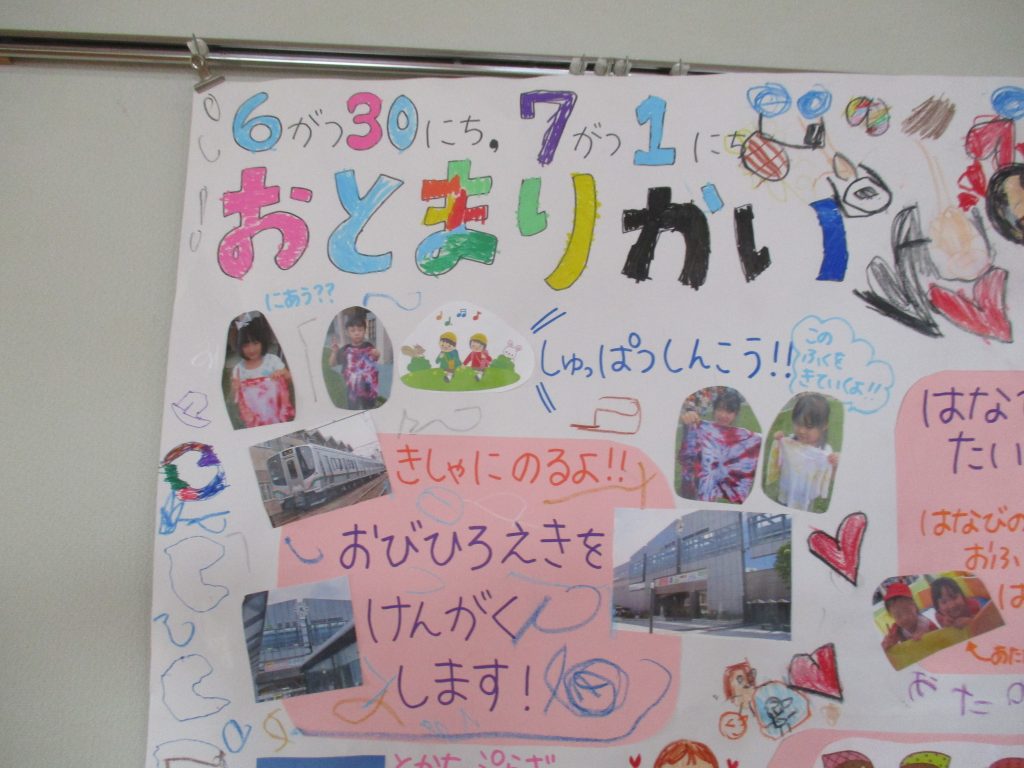 6がつ30にち,7がつ1にち
おとまりかい
にあう??
しゅっぱつしんこう!!
この
ふくを
きていくよ!!
きしゃにのるよ!!
おびひろえきを
けんがく
します!
はな
たい
はなびの
おふ
は
あた
おた
とかちぷらざ